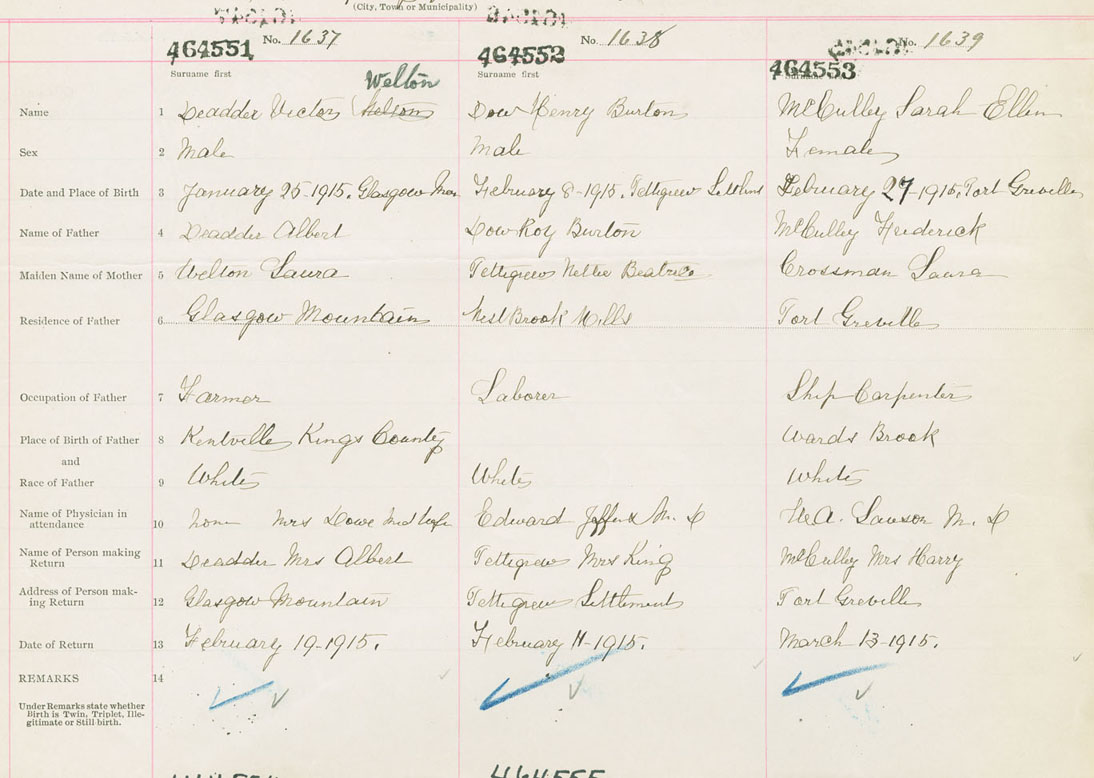 (City, Town or Municipality)
464551 No. 1637
464552 No. 1638
464553 No. 1639
Surname first Surname first Surname first
Welton
Name 1 Deadder Victor Dow Henry Burton McCulley Sarah Ellen
Sex 2 Male Male Female
Date and Place of Birth 3 January 25-1915. Glasgow Mon February 8-1915. Pettigrew February 27-1915. Port Greville
Name of Father 4 Deadder Albert Dow Roy Burton McCulley Frederick
Maiden Name of Mother 5 Welton Laura Pettigrew Nettie Beatrice Crossman Laura
Residence of Father 6 Glasgow Mountain West Brook Mills Port Greville
Occupation of Father 7 Farmer Laborer Ship Carpenter
Place of Birth of Father 8 Kentville Kings County Wards Brook
and
Race of Father 9 White White White
Name of Physician in
attendance 10 none Mrs Dowe Midwife Edward M. D W.A. Lawson M. D
Name of Person making
Return 11 Deadder Mrs Albert Pettigrew Mrs King McCulley Mrs Harry
Address of Person mak-
ing Return 12 Glasgow Mountain Pettigrew Settlement Port Greville
Date of Return 13 February 19-1915. February 11-1915. March 13-1915.
REMARKS 14
Under Remarks state whether
Birth is Twin, Triplet, Ille-
gitimate or Still-birth.
464555